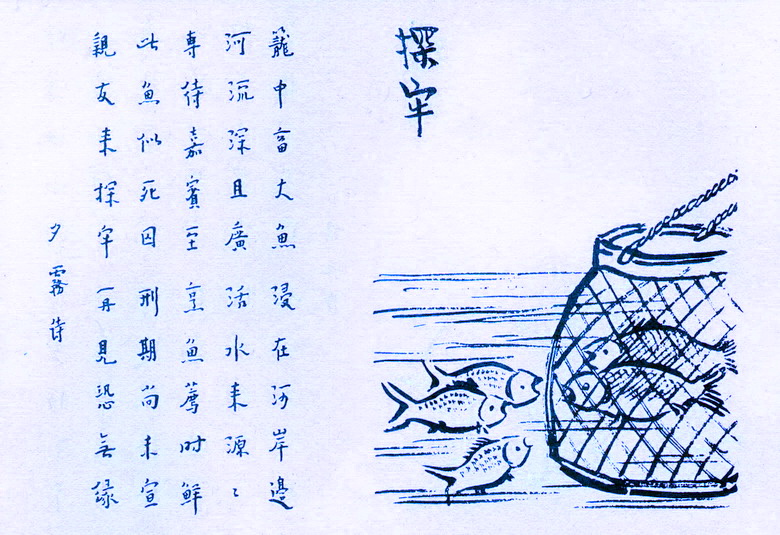 探牢
籠中畜大魚浸在河岸邊
河流深且廣活水来源々
專待嘉賓至烹魚薦时鮮
此魚似死囚刑期尚未宣
親友来探牢再見恐無緣
夕霧詩